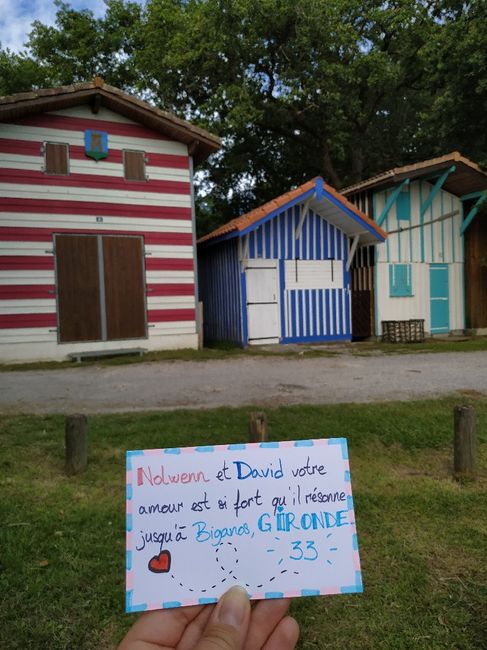 Nolwenn et David votre
amour est si fort qu'il résonne
jusqu'à Biganos, GIRONDE
33